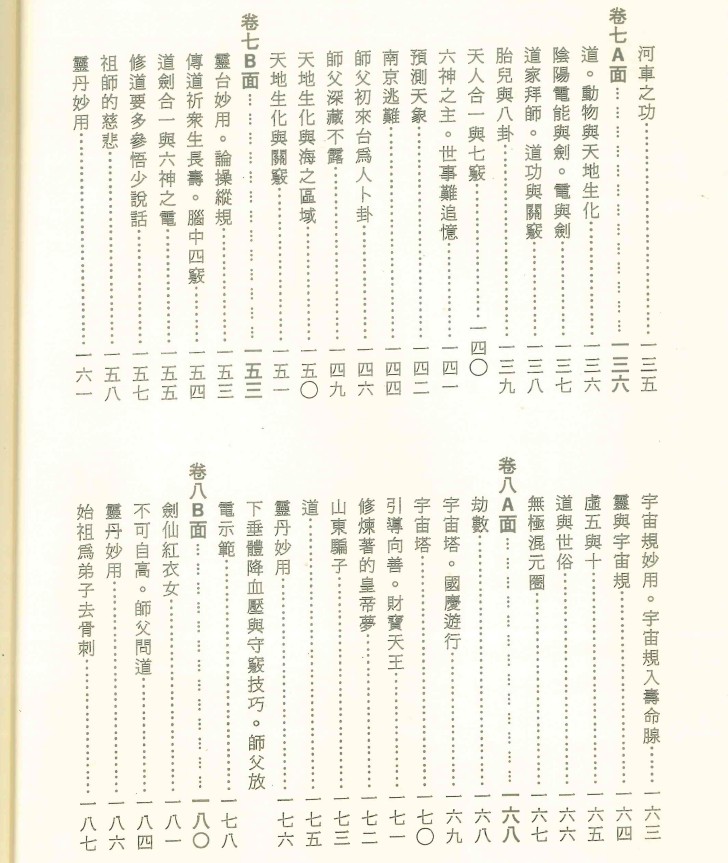 河車之功……………………一三五
卷七A面……………………一三六
道。動物與天地生化……………………一三六
陰陽電能與劍。電與劍……………………一三七
道家拜師。道功與關竅……………………一三八
胎兒與八卦……………………一三九
天人合一與七竅……………………一四〇
六神之主。世事難追憶……………………一四一
預測天象……………………一四二
南京逃難……………………一四四
師父初來台為人卜卦……………………一四六
師父深藏不露……………………一四九
天地生化與海之區域……………………一五〇
天地生化與關竅……………………一五一
卷七B面……………………一五三
靈台妙用。論操縱規……………………一五三
傳道祈衆生長壽。腦中四竅……………………一五四
道劍合一與六神之電……………………一五五
修道要多參悟少說話……………………一五七
祖師的慈悲……………………一五八
靈丹妙用……………………一六一
宇宙規妙用。宇宙規入壽命腺……………………一六三
靈與宇宙規……………………一六四
虛五與十……………………一六五
道與世俗……………………一六六
無極混元圈……………………一六七
卷八A面……………………一六八
劫數……………………一六八
宇宙塔。國慶遊行……………………一六九
宇宙塔……………………一七〇
引導向善。財寶天王……………………一七一
修煉著的皇帝夢……………………一七二
山東騙子……………………一七三
道……………………一七五
靈丹妙用……………………一七六
下垂體降血壓與守竅技巧。師父放
電示範……………………一七八
卷八B面……………………一八〇
劍仙紅衣女……………………一八一
不可自高。師父問道……………………一八四
靈丹妙用……………………一八六
始祖為弟子去骨刺……………………一八七